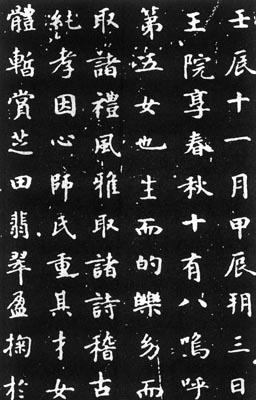 壬辰十一月甲辰朔三日
王院享春秋十有八嗚呼
第五女也生而的皪幼而
取諸禮風雅取諸詩稽古
純孝因心師氏重其才女
體暫賞芝田翡翠盈掬於